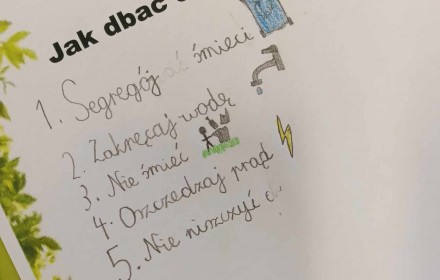 Jak dbać
1. Segregój śmieci
2. Zakręcaj wodę
3. Nie śmieć
4. Oszczędzaj prąd
5. Nie niszczyć